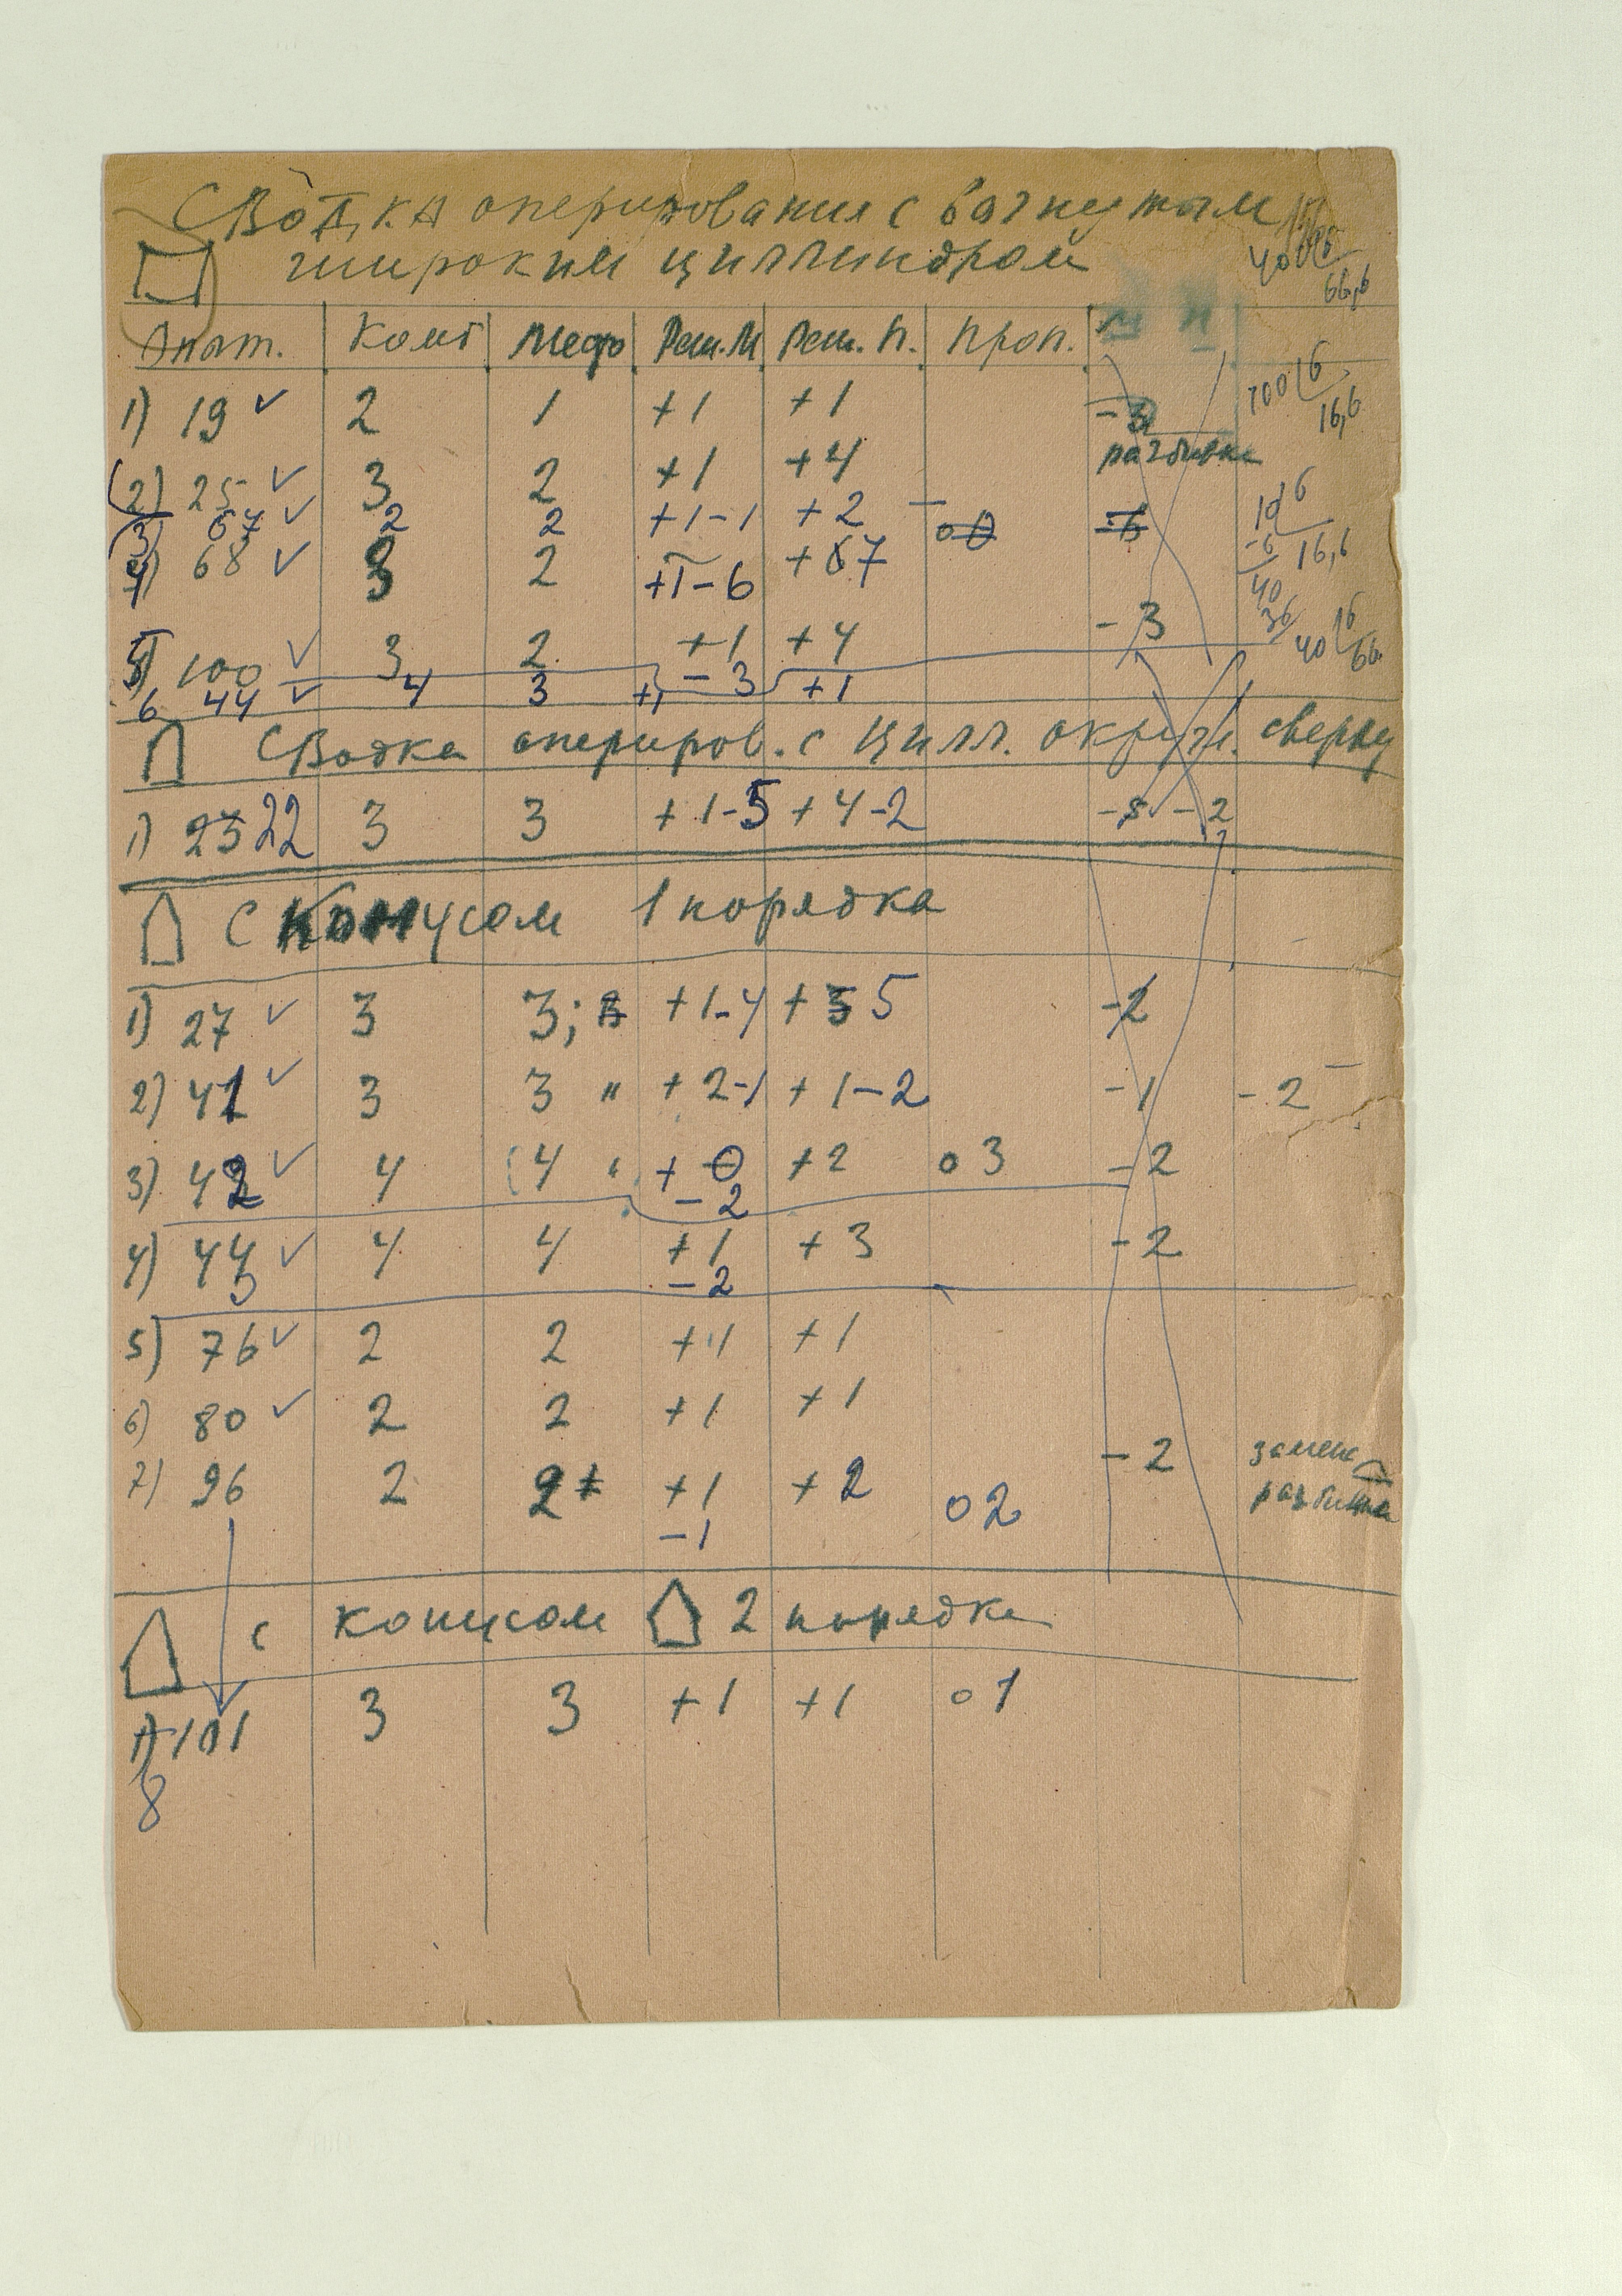 Сводка оперирования с вогнутым
широким циллиндром
40
66,6
пат. Комб Мефо Реш.М Реш.П. Проп. М П
1) 19 ✓ 2 1 +1 +1 -3
100 6
16,6
разбивка
2) 25 ✓ 3 2 +1 +4
3) 67 ✓ 2 2 +1-1 +2
10 6
-6 16,6
40
36
4) 68 ✓ 3 2 +1-6 +7
5) 100 ✓ 3 2 +1 -3 +4 -3
40 6
66
6 44 ✓ 4 3 +1 +1
Сводка опериров. с Цилл. округл. сверху
1) 23 22 3 3 +1-5 +4-2 -5 -2
С Конусом 1 порядка
1) 27 ✓ 3 3; +1-4 +5 -2
2) 41 ✓ 3 3 " +2-1 +1-2 -1 -2
3) 42 ✓ 4 4 " +0 +2 о 3 -2
-2
4) 44 ✓ 4 4 +1 +3 -2
3 -2
5) 76 ✓ 2 2 +1 +1
6) 80 ✓ 2 2 +1 +1
7) 96 2 2 +1 +2 о2 -2 замена
-1 разбивка
с конусом 2 порядка
1) 101 3 3 +1 +1 о 1
8